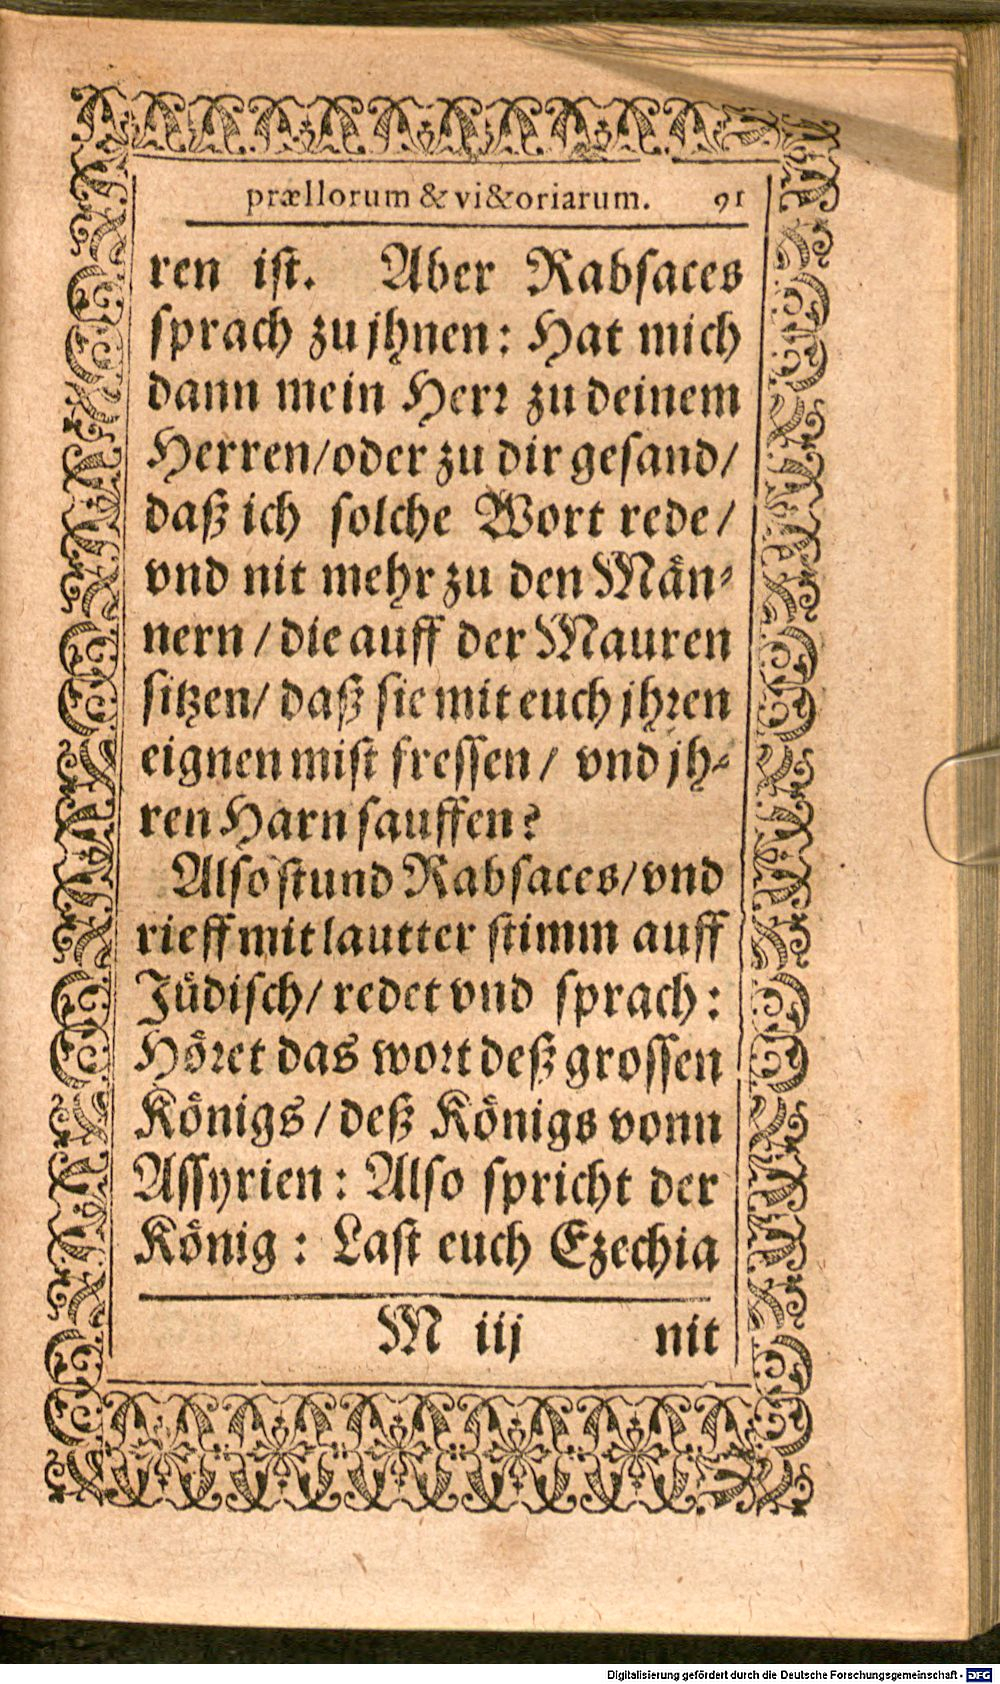 præliorum & vi&oriarum. 91
ren ist. Aber Rabsaces
sprach zu jhnen: Hat mich
dann mein Herr zu deinem
Herren/oder zu dir gesand/
daß ich solche Wort rede/
vnd nit mehr zu den Män-
nern/die auff der Mauren
sitzen/ daß sie mit euch jhren
eignen mist fressen/ vnd jh-
ren Harn sauffen?
Also stund Rabsaces/vnd
rieff mit lautter stimm auff
Jüdisch/ redet vnd sprach:
Höret das wort deß grossen
Königs/deß Königs vonn
Assyrien: Also spricht der
König: Last euch Ezechia
M iij nit
Digitalisierung gefördert durch die Deutsche Forschungsgemeinschaft - DFG